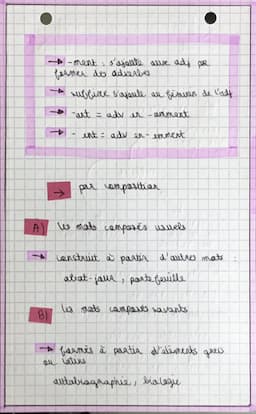 → -ment : s'ajoute aux adj pr
former des adverbes
→ suffixe s'ajoute au féminin de l'adj
→ -ant = adv en -amment
→ -ent = adv en -emment
→ par composition
A) les mots composés usuels
→ construit à partir d'autres mots :
abat-jour, portefeuille
B) les mots composés savants
→ formés à partir d'éléments grecs
ou latins
autobiographie, biologie